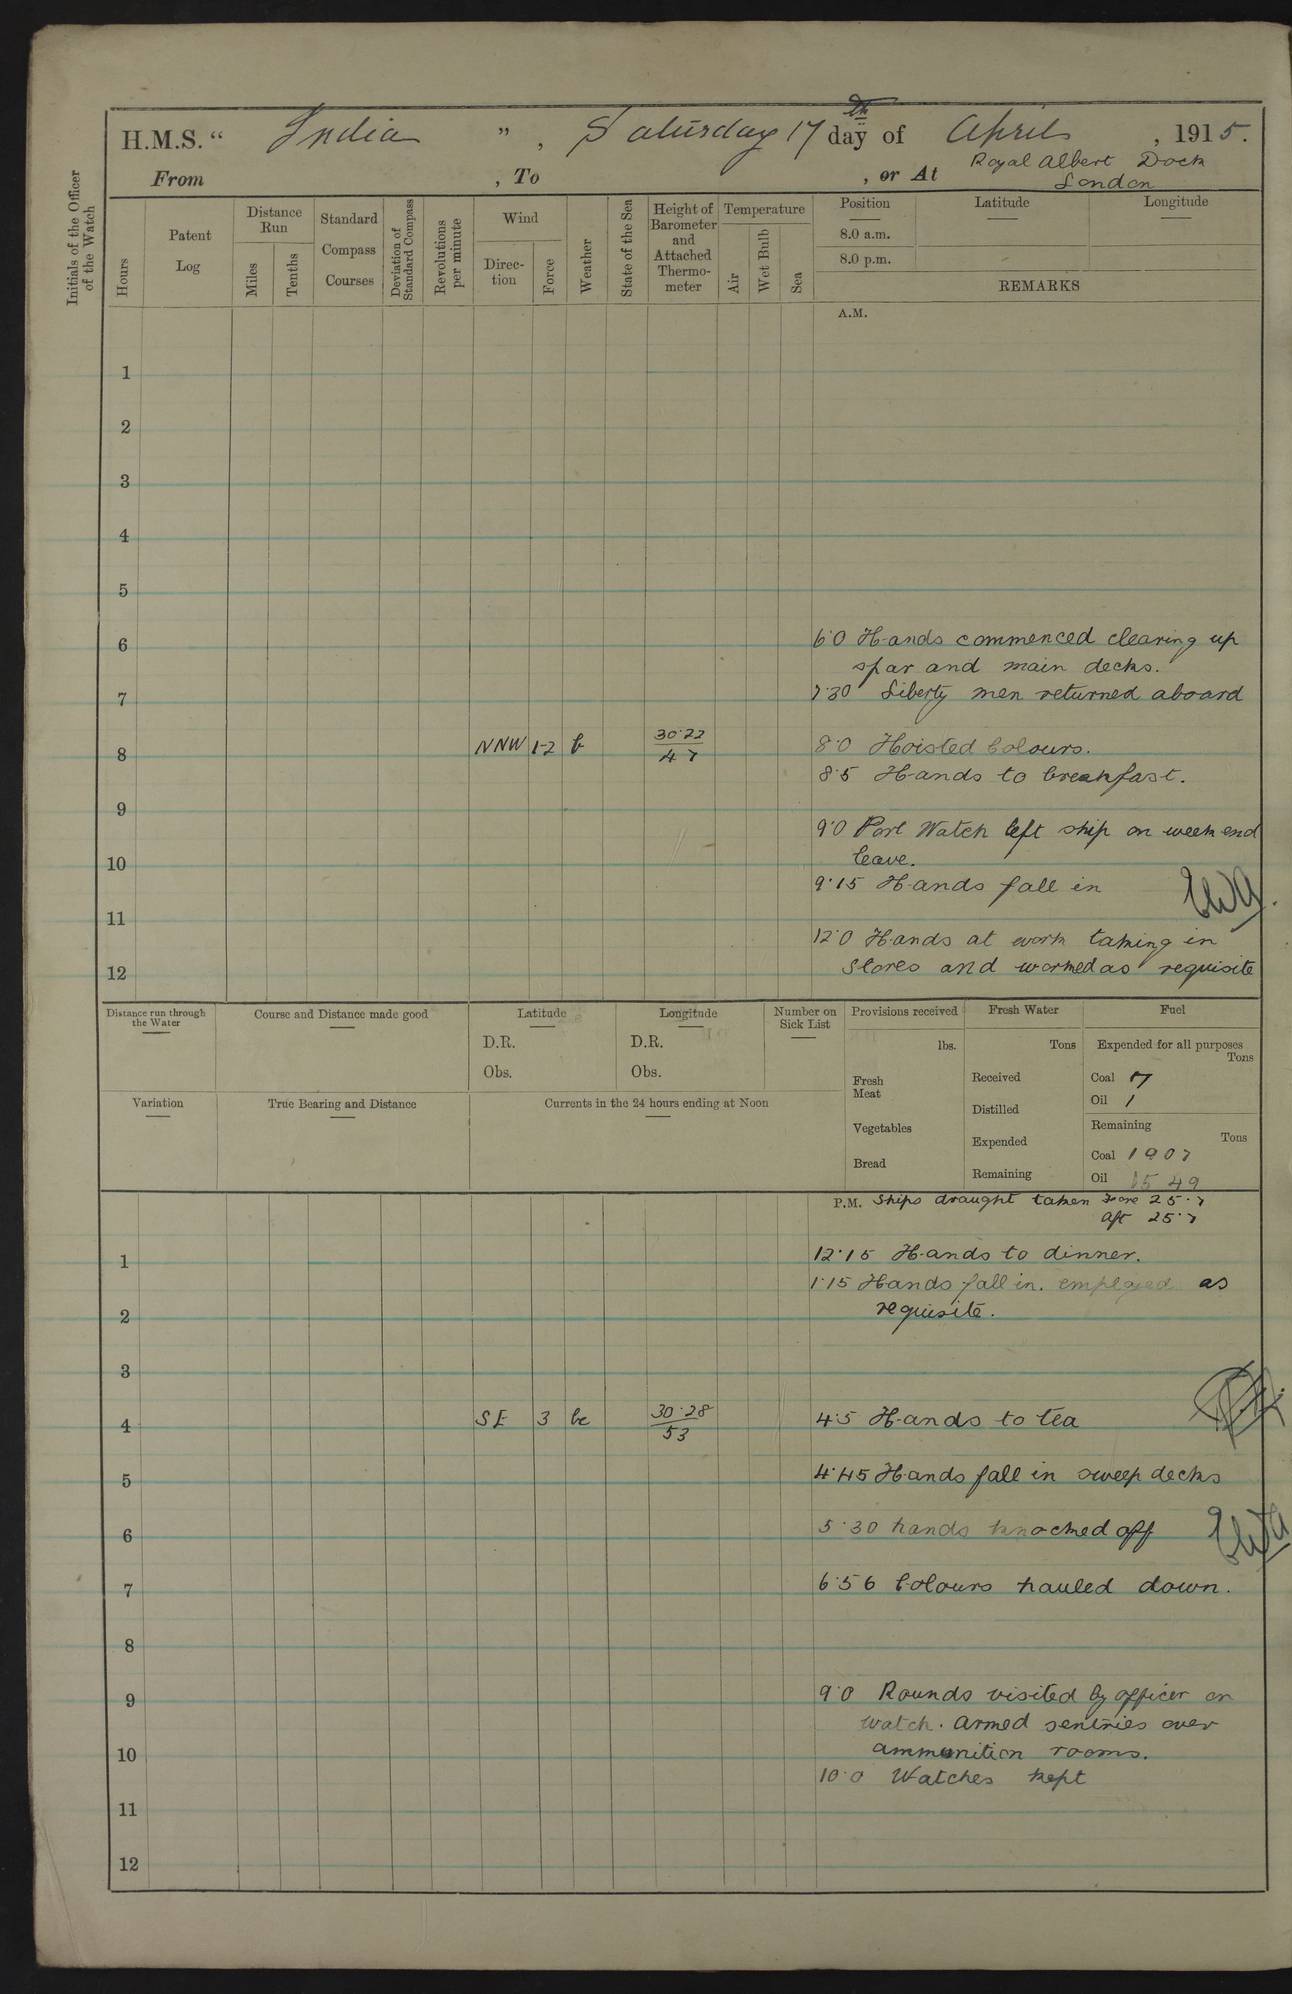 H.M.S. “ India ” , Saturday 17 th day of April , 1915.
From , To , or At Royal Albert Dock
London
Initials of the Officer
of the Watch
Hours
Patent
Log
Distance
Run
Miles
Tenths
Standard
Compass
Courses
Deviation of
Standard Compass
Revolutions
per minute
Wind
Direc-
tion
Force
Weather
State of the Sea
Height of
Barometer
and
Attached
Thermo-
meter
Temperature
Air
Wet Bulb
Sea
Position
8.0 a.m.
8.0 p.m.
Latitude
Longitude
REMARKS
A.M.
1
2
3
4
5
6 6·0 Hands commenced clearing up
spar and main decks.
7 7·30 Liberty men returned aboard
8 NNW 1-2 b 30·22 8·0 Hoisted Colours.
47
8·5 Hands to breakfast.
9
9·0 Port Watch left ship on week end
10 leave.
9·15 Hands fall in
11
12·0 Hands at work taking in
12 stores and worked as requisite
Distance run through
the Water
Course and Distance made good
Latitude
D.R.
Obs.
Longitude
D.R.
Obs.
Number on
Sick List
Provisions received
lbs.
Fresh
Meat
Vegetables
Bread
Fresh Water
Tons
Received
Distilled
Expended
Remaining
Fuel
Expended for all purposes
Tons
Coal 17
Oil 1
Remaining
Tons
Coal 1907
Oil 1549
Variation
True Bearing and Distance
Currents in the 24 hours ending at Noon
P.M. Ships draught taken Fore 25·7
Aft 25·7
1 12·15 Hands to dinner.
1·15 Hands fall in. employed as
2 requisite.
3
4 SE 3 bc 30·28 4·5 Hands to tea
53
5 4·45 Hands fall in sweep decks
6 5·30 hands knocked off
7 6·56 Colours hauled down.
8
9 9·0 Rounds visited by officer on
watch. Armed sentries over
10 ammunition rooms.
10·0 Watches kept
11
12